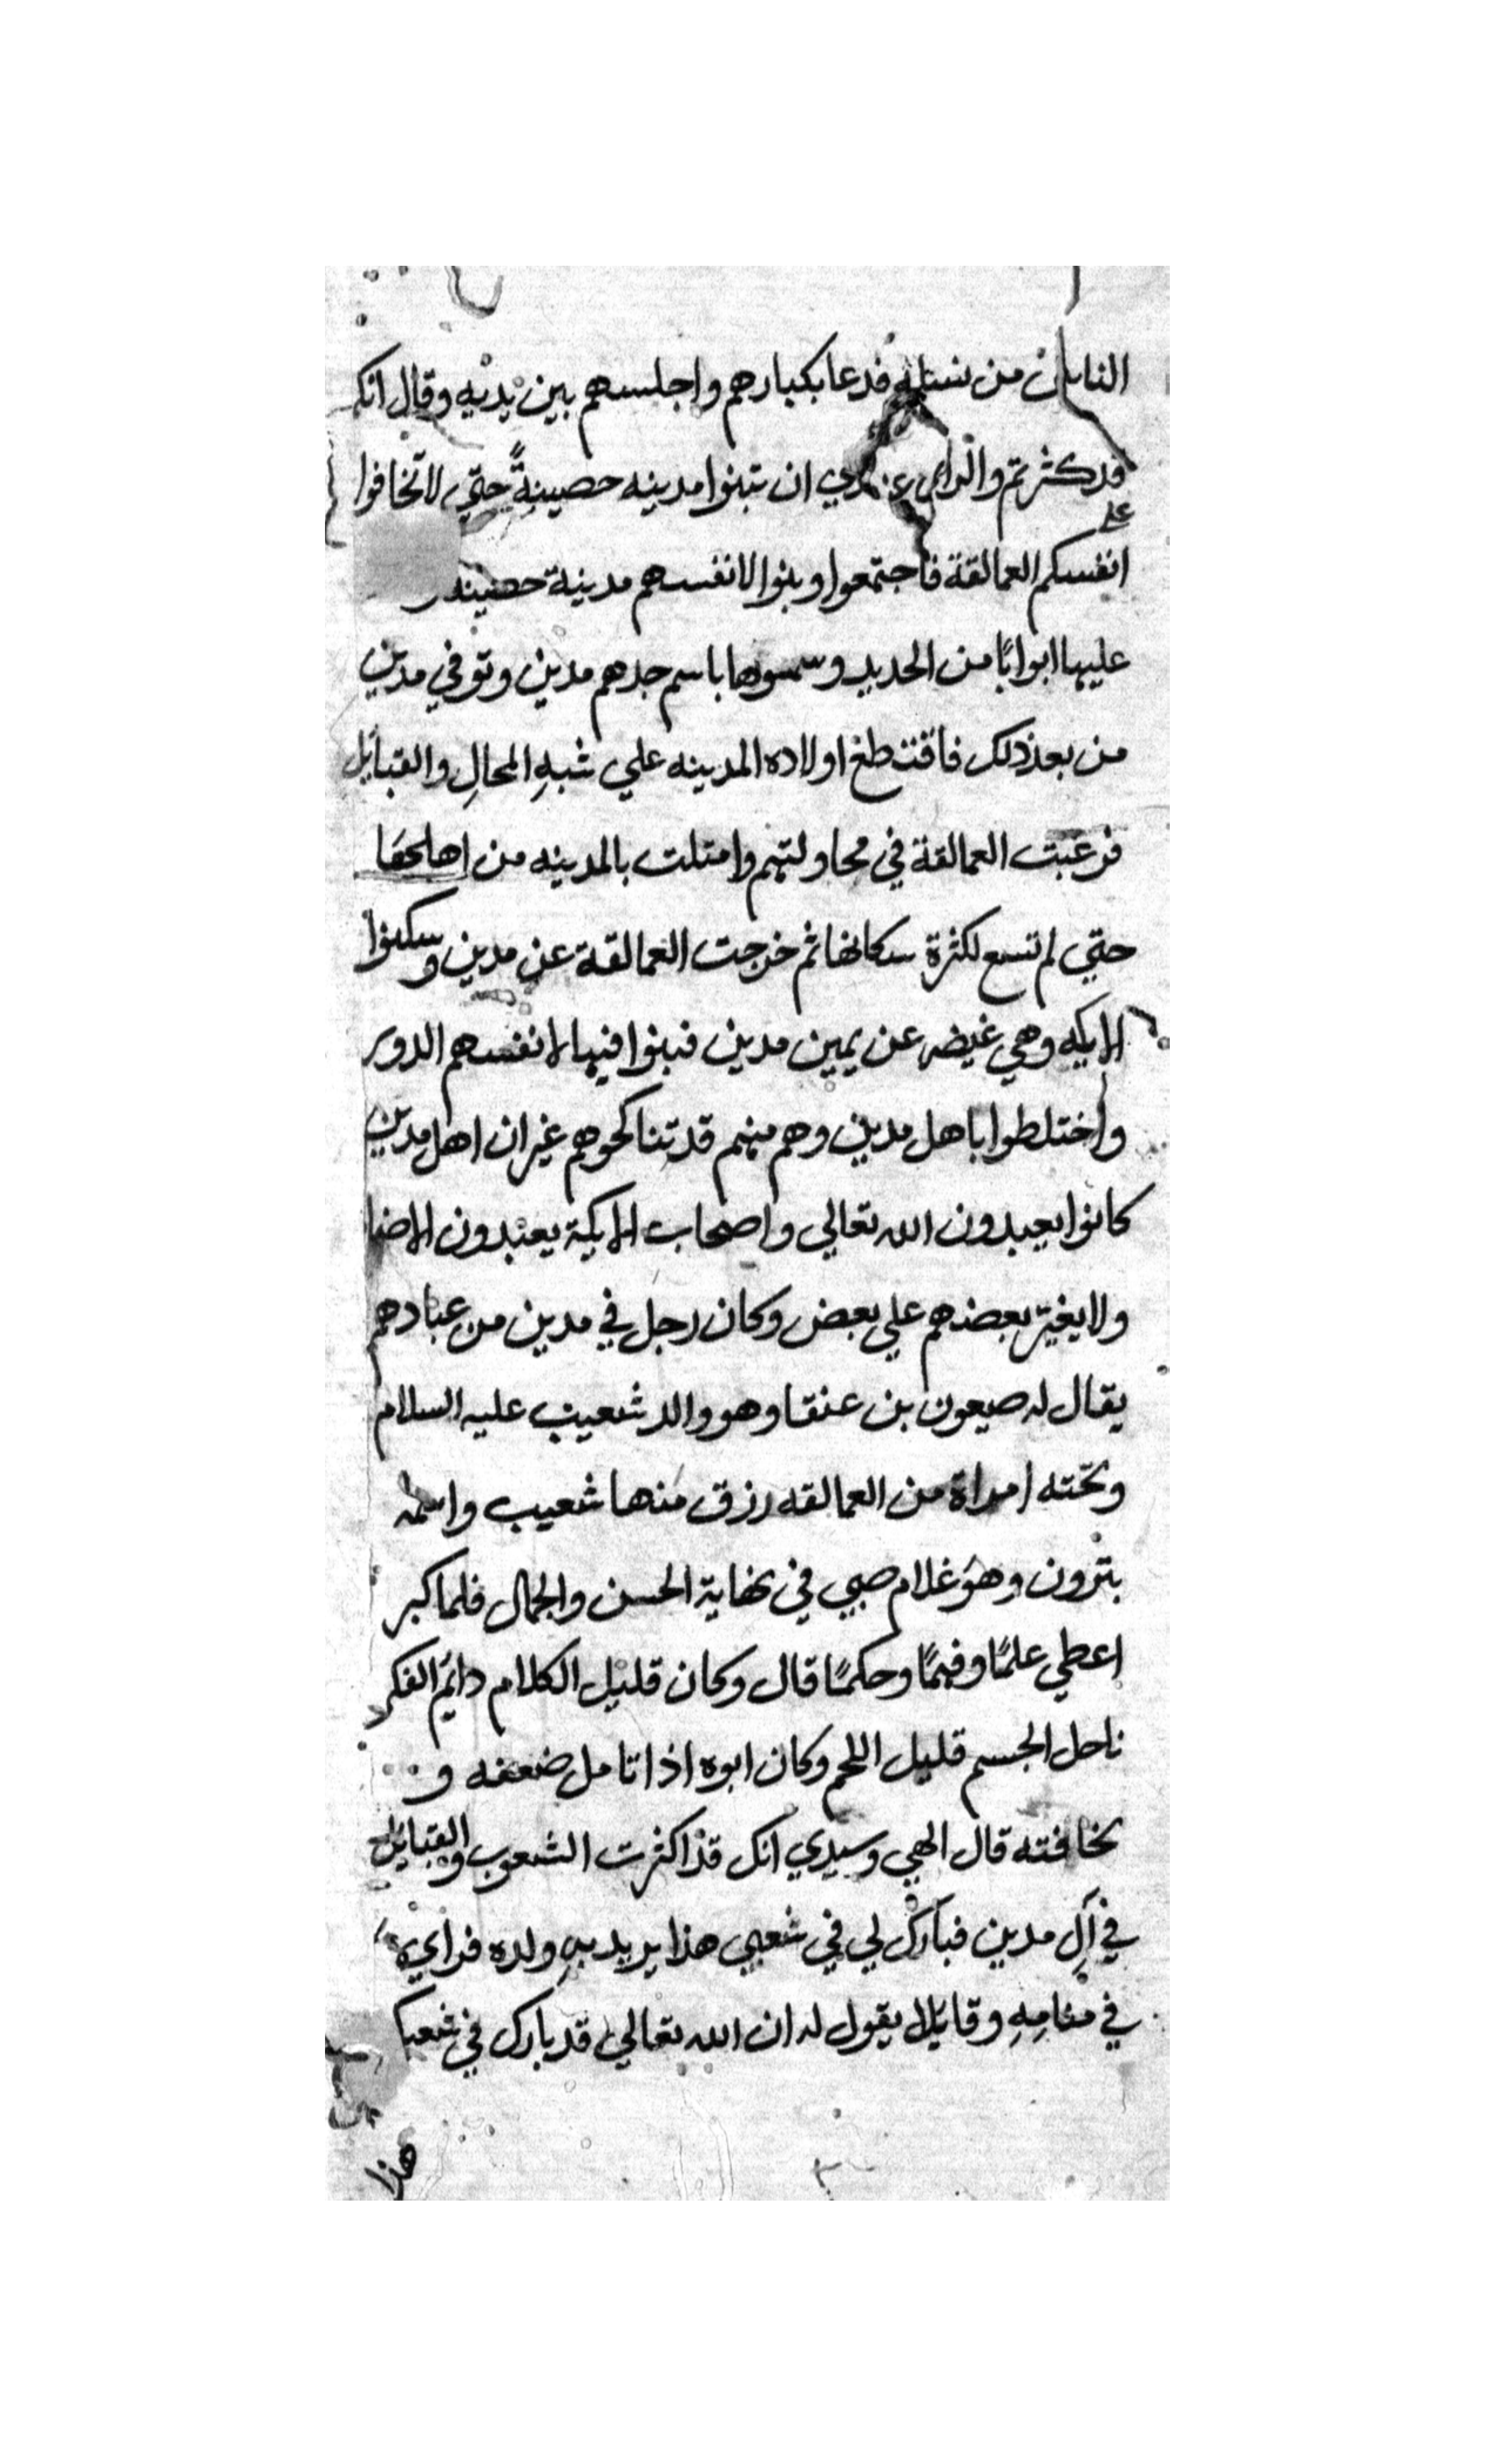 الناس من نسله فدعا بكبارهم واجلسهم بين يديه وقال انكم
قد كثرتم والراي عندي ان تبنوا مدينه حصينةً حتي لا تخافوا
علي
انفسكم العمالقة فاجتمعوا وبنوا لانفسهم مدينة حصينه
عليها ابوابًا من الحديد وسموها باسم جدهم مدين وتوفي مدين
من بعد ذلك فاقتطع اولاده المدينه علي شبهِ المحالِ والقبايل
فرغبت العمالقة في محاولتهم وامتلت بالمدينه من اهلها
حتي لم تسع لكثرة سكانها ثم خرجت العمالقة عن مدين وسكنوا
الايكه وهي غيضه عن يمين مدين فبنوا فيها لانفسهم الدور
واختلطوا باهل مدين وهم منهم قد تناكحوهم غير ان اهل مدين
كانوا يعبدون الله تعالي واصحاب الايكة يعبدون الاصنا
ولا يغير بعضهم علي بعض وكان رجل في مدين من عبادهم
يقال له صيعون بن عنقا وهو والد شعيب عليه السلام
وتحته امراة من العمالقه رزق منها شعيب واسمه
بترون وهو غلام صبي في نهاية الحسن والجمال فلما كبر
اعطي علمًا وفهمًا وحكمًا قال وكان قليل الكلام دايم الفكر
ناحل الجسم قليل اللحم وكان ابوه اذا تامل ضعفه و
نحافته قال الهي وسيدي انك قد اكثرت الشعوب والقبايل
في آلِ مدين فبارك لي في شعبي هذا يريد بهِ ولده فراي
في منامِهِ وقايلا يقول له ان الله تعالي قد بارك في شعبك
هذا